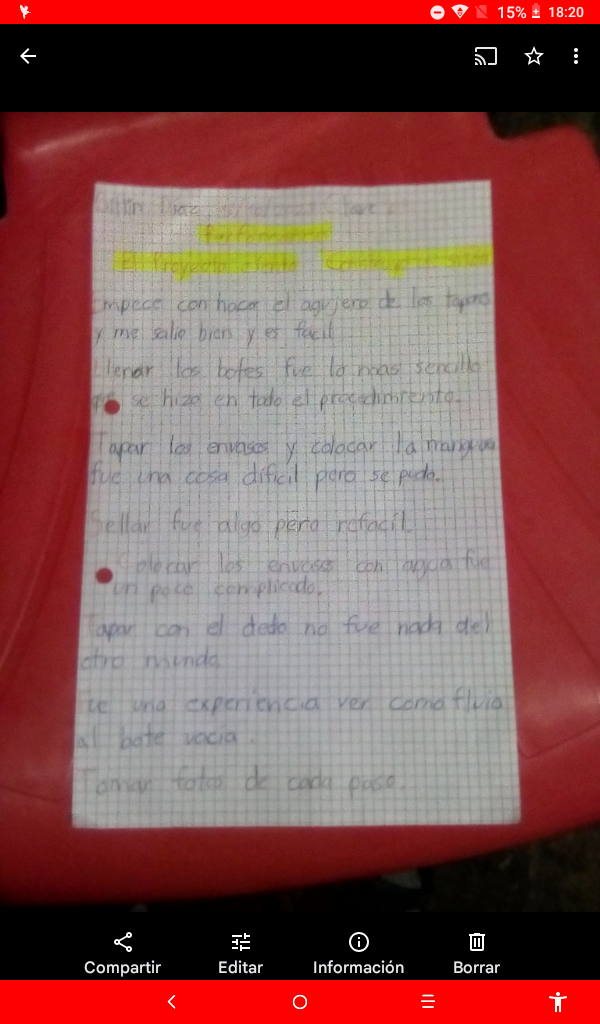 15% 18:20
Díaz
El Proyecto
Empece con hacer el agujero de los tapones
y me salio bien y es facil
Llenar los botes fue lo mas sencillo
se hizo en todo el procedimiento.
Tapar los envases y colocar la manguera
fue una cosa dificil pero se pudo.
Sellar fue algo pero refacil.
Colocar los envases con agua fue
un poco complicado.
Tapar con el dedo no fue nada del
otro mundo
Fue una experiencia ver como fluia
al bote vacia.
Tomar fotos de cada paso.
Compartir Editar Información Borrar